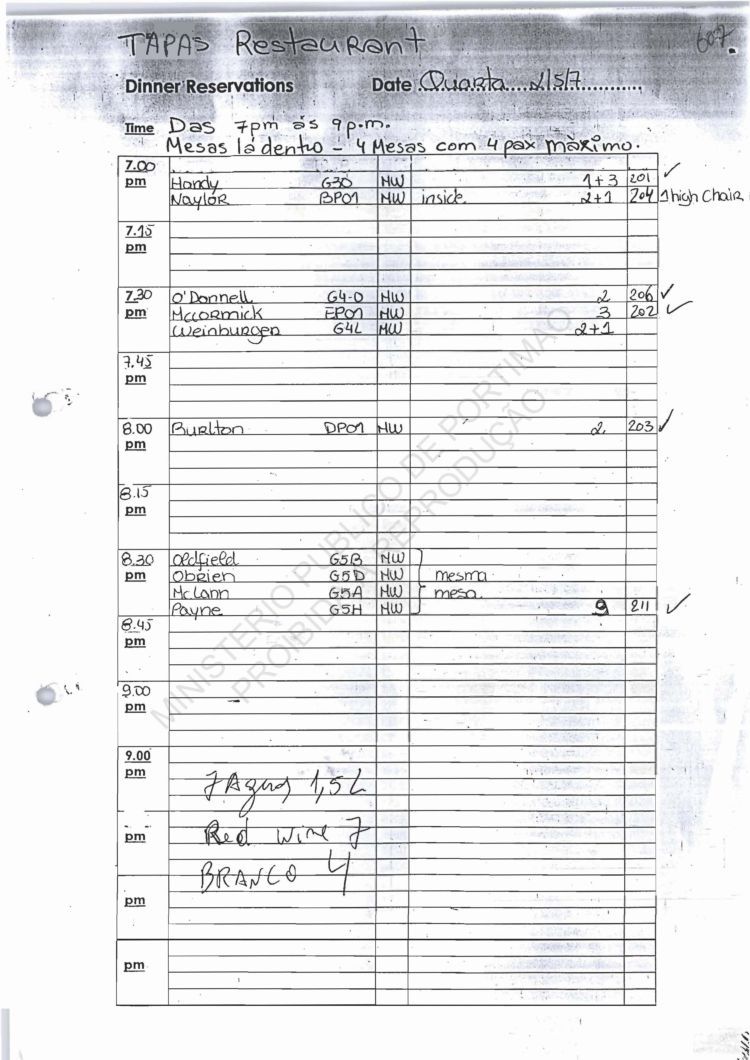 TAPAS Restaurant
607.
Dinner Reservations Date Quarta 2/5/7
Time Das 7pm ás 9p.m.
Mesas lá dentro - 4 Mesas com 4 pax máximo.
7.00
pm Handy G30 NW 1+3 201 ✓
Naylor BP01 NW inside. 2+1 204 1 high Chair
7.15
pm
7.30 O'Donnell G4-O NW 2 206 ✓
pm McCormick EP01 NW 3 202 ✓
Weinburger G4L NW 2+1
7.45
pm
8.00 Burlton DP01 NW 2. 203 ✓
pm
8.15
pm
8.30 Oldfield G5B NW
pm Obrien G5D NW mesma
McCann G5A NW mesa.
Payne G5H NW 9 211 ✓
8.45
pm
9.00
pm
9.00
pm 7 Aguas 1,5L
pm Red Wine 7
BRANCO 4
pm
pm
MINISTERIO PUBLICO DE PORTIMAO
PROIBIDA A REPRODUÇÃO